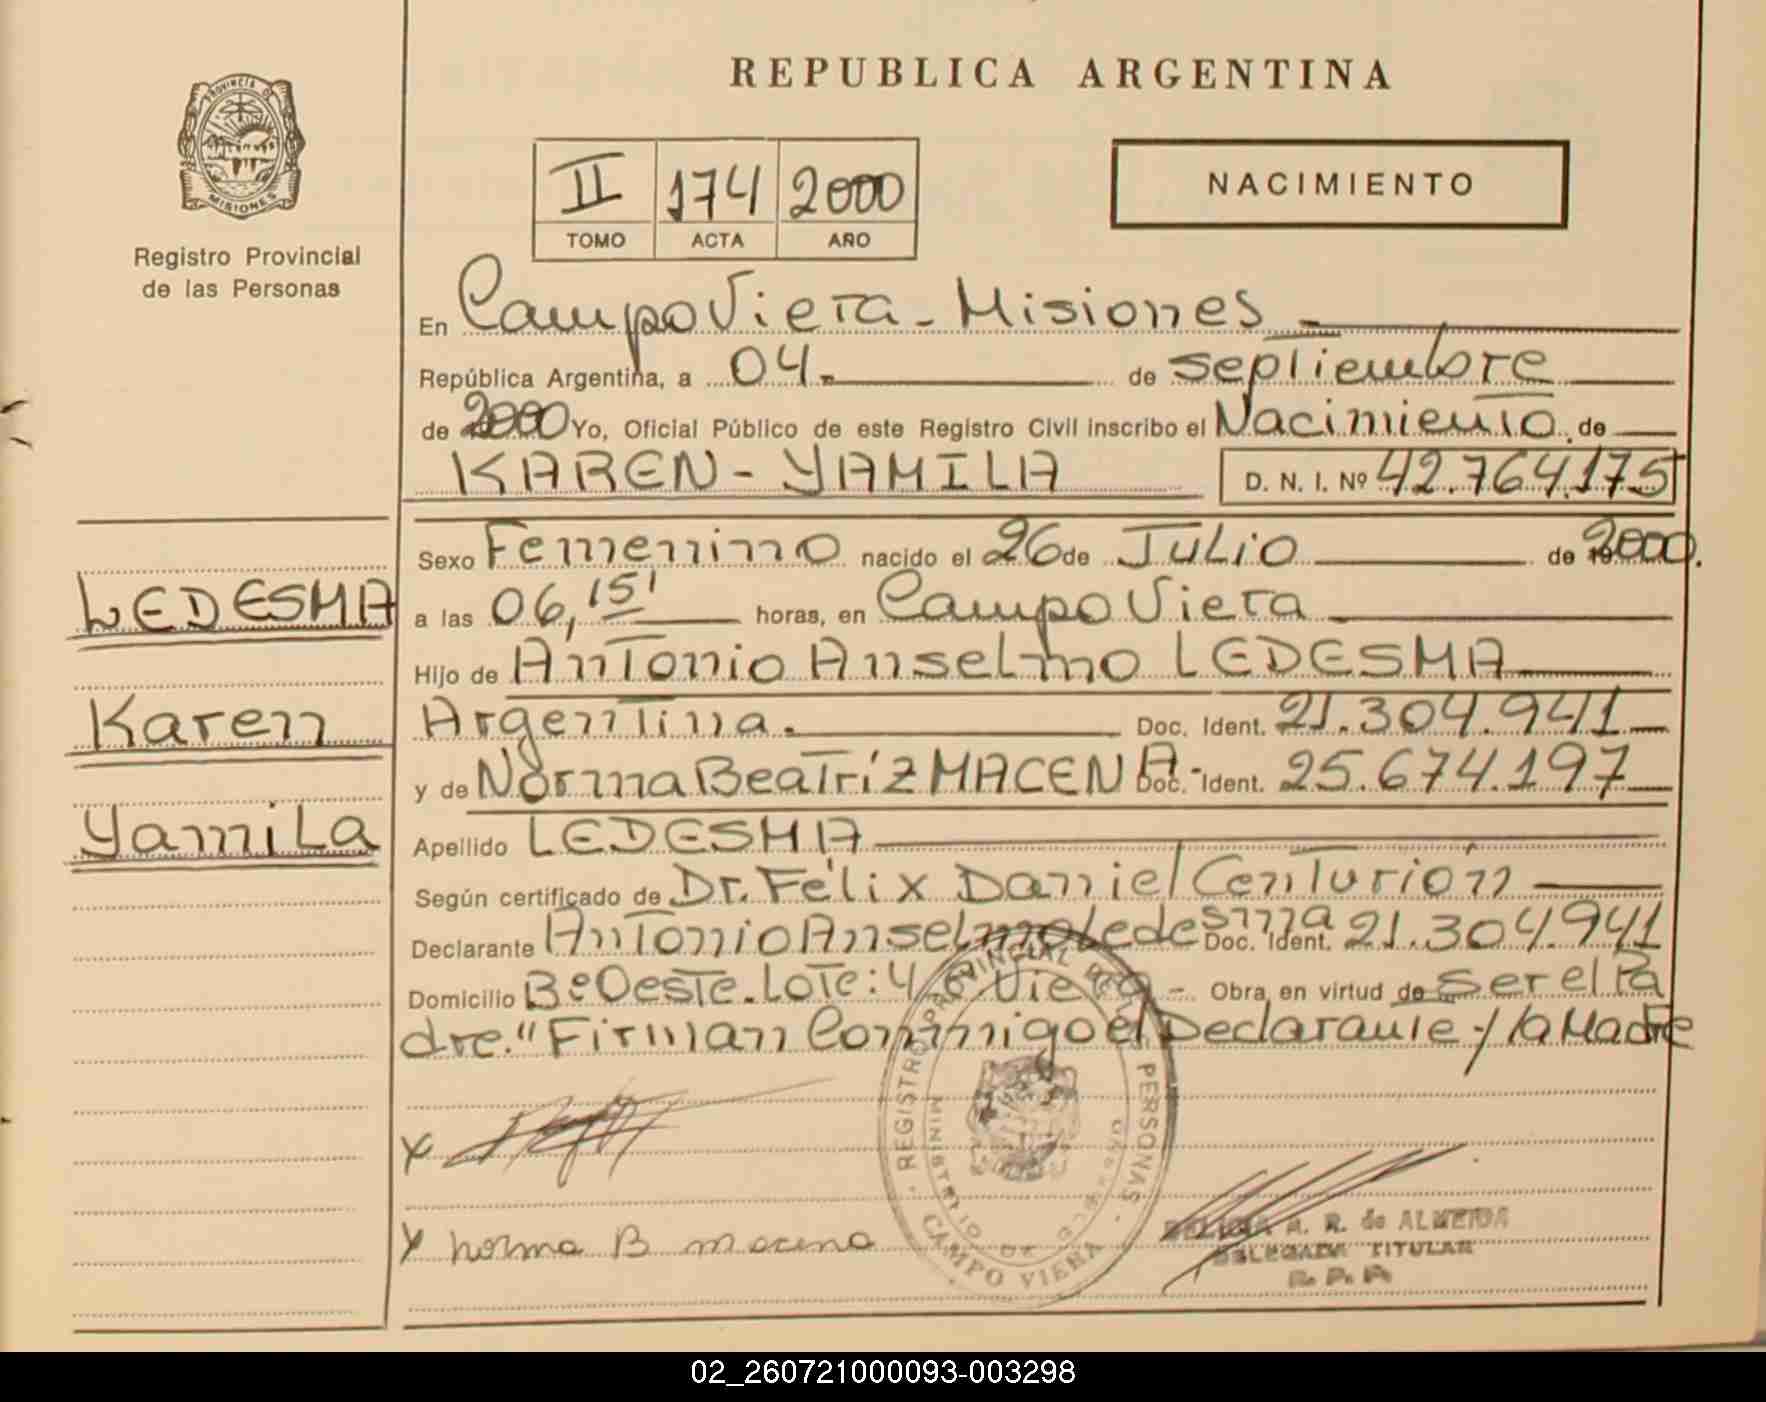 PROVINCIA DE
MISIONES
Registro Provincial
de las Personas
LEDESMA
Karen
Yamila
REPUBLICA ARGENTINA
II 174 2000
TOMO ACTA AÑO
NACIMIENTO
En Campo Viera - Misiones
República Argentina, a 04. de septiembre
de 2000 Yo, Oficial Público de este Registro Civil inscribo el Nacimiento de
KAREN - YAMILA D. N. I. Nº 42.764.175
Sexo Femenino nacido el 26 de Julio de 2000.
a las 06,15' horas, en Campo Viera
Hijo de Antonio Anselmo LEDESMA
Argentina. Doc. Ident. 21.304.941
y de Norma Beatríz MACENA - Doc. Ident. 25.674.197
Apellido LEDESMA
Según certificado de Dr. Félix Daniel Centurión
Declarante Antonio Anselmo Ledesma Doc. Ident. 21.304.941
Domicilio Bº Oeste. Lote: 4 C. Viera - Obra en virtud de ser el Pa
dre." Firman Conmigo el Declarante y la Madre
X
X norma B macena
REGISTRO PROVINCIAL DE LAS PERSONAS
MINISTERIO DE GOBIERNO
CAMPO VIERA
A. R. de ALMEIDA
DELEGADA TITULAR
R. P. P.
02_260721000093-003298